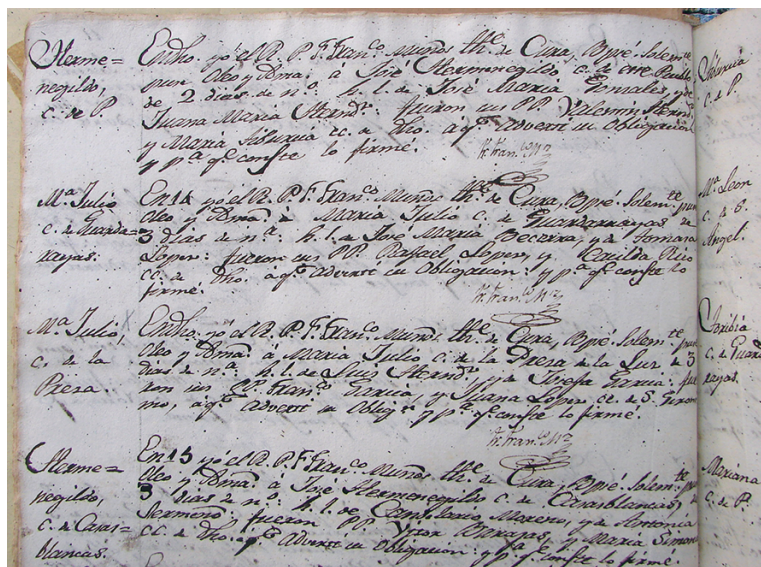 Herme=
negildo,
c. de P.
En dho. yó el R. P. F. Fran.co Muños th.e de Cura, Bpsé. Solem.te
puse Oleo y á José Hermenegildo c. de este Pueblo
de 2 dias de n.o h. l. de José Maria Gonzales, y de
Juana Maria Hernd.s fueron sus PP. Valentin Hernd.s
y Maria cc. de dho. a q.e adverti su Obligacion
y p.a q.e conste lo firmé.
Fr. Fran.co Mz
M.a Julio
c. de Guarda=
rayas.
En 14 yó el R. P. F. Fran.co Muños th.e de Cura, Bpsé. Solem.te puse
Oleo y á Maria Julio c. de Guardarrayas de
3 dias de n.a: h. l. de José Maria Becerra, y de Tomasa
Lopes: fueron sus PP. Rafael Lopes, y Casilda Rico
cc. de dho. a q.e adverti su Obligacion: y p.a q.e conste lo
firmé.
Fr. Fran.co Mz
M.a Julio,
c. de la
Presa
En dho. yó el R. P. F. Fran.co Muños th.e de Cura, Bpsé. Solem.te puse
Oleo y á Maria Julio c. de la Presa de la Luz, de 3
dias de n.a h. l. de Luis Hernd.s y de Josefa Garcia: fue
ron sus PP. Fran.co Garcia, y Juana Lopes cc. de S. Geroni
mo, a q.e adverti su Oblig.n y p.a q.e conste lo firmé.
Fr. Fran.co Mz
Herme=
negildo,
c. de Casas=
blancas.
En 15 yó el R. P. F. Fran.co Muños th.e de Cura, Bpsé. Solem.te puse
Oleo y á José Hermenegildo c. de Casasblancas, de
3 dias de n.o h. l. de Moreno, y de Antonia
fueron PP. Barajas, y Maria Simona
cc. de dho. q.e Adverti su Obligacion: y p.a q.e conste lo firmé.
c. de P.
M.a Leon
c. de S.
Angel.
Toribia
c. de Guard
rayas.
Mariana
c. de P.